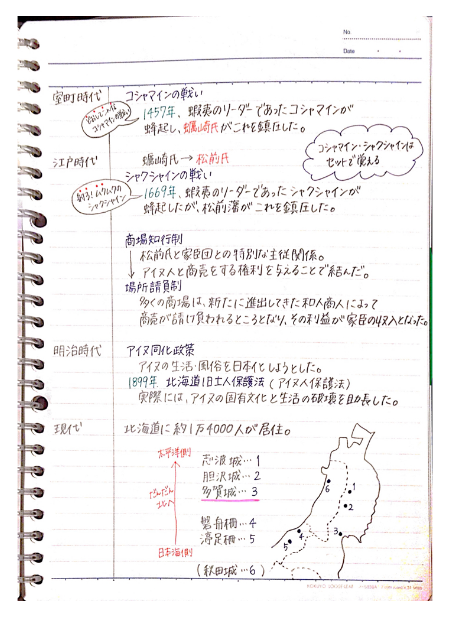 No.
Date
室町時代 コシャマインの戦い
1457年、蝦夷のリーダーであったコシャマインが
蜂起し、蠣崎氏がこれを鎮圧した。
コシャマイン・シャクシャインは
セットで覚える
江戸時代 蠣崎氏→松前氏
シャクシャインの戦い
1669年、蝦夷のリーダーであったシャクシャインが
蜂起したが、松前藩がこれを鎮圧した。
シャクシャイン
商場知行制
松前氏と家臣団との特別な主従関係。
アイヌ人と商売をする権利を与えることで結んだ。
場所請負制
多くの商場は、新たに進出してきた和人商人によって
商売が請け負われるところとなり、その利益が家臣の収入となった。
明治時代 アイヌ同化政策
アイヌの生活・風俗を日本化しようとした。
1899年 北海道旧土人保護法(アイヌ人保護法)
実際には、アイヌの固有文化と生活の破壊を助長した。
現代 北海道に約1万4000人が居住。
太平洋側
だんだん
北へ
日本海側
志波城…1
胆沢城…2
多賀城…3
磐舟柵…4
渟足柵…5
(秋田城…6)
6
1
2
3
4
5